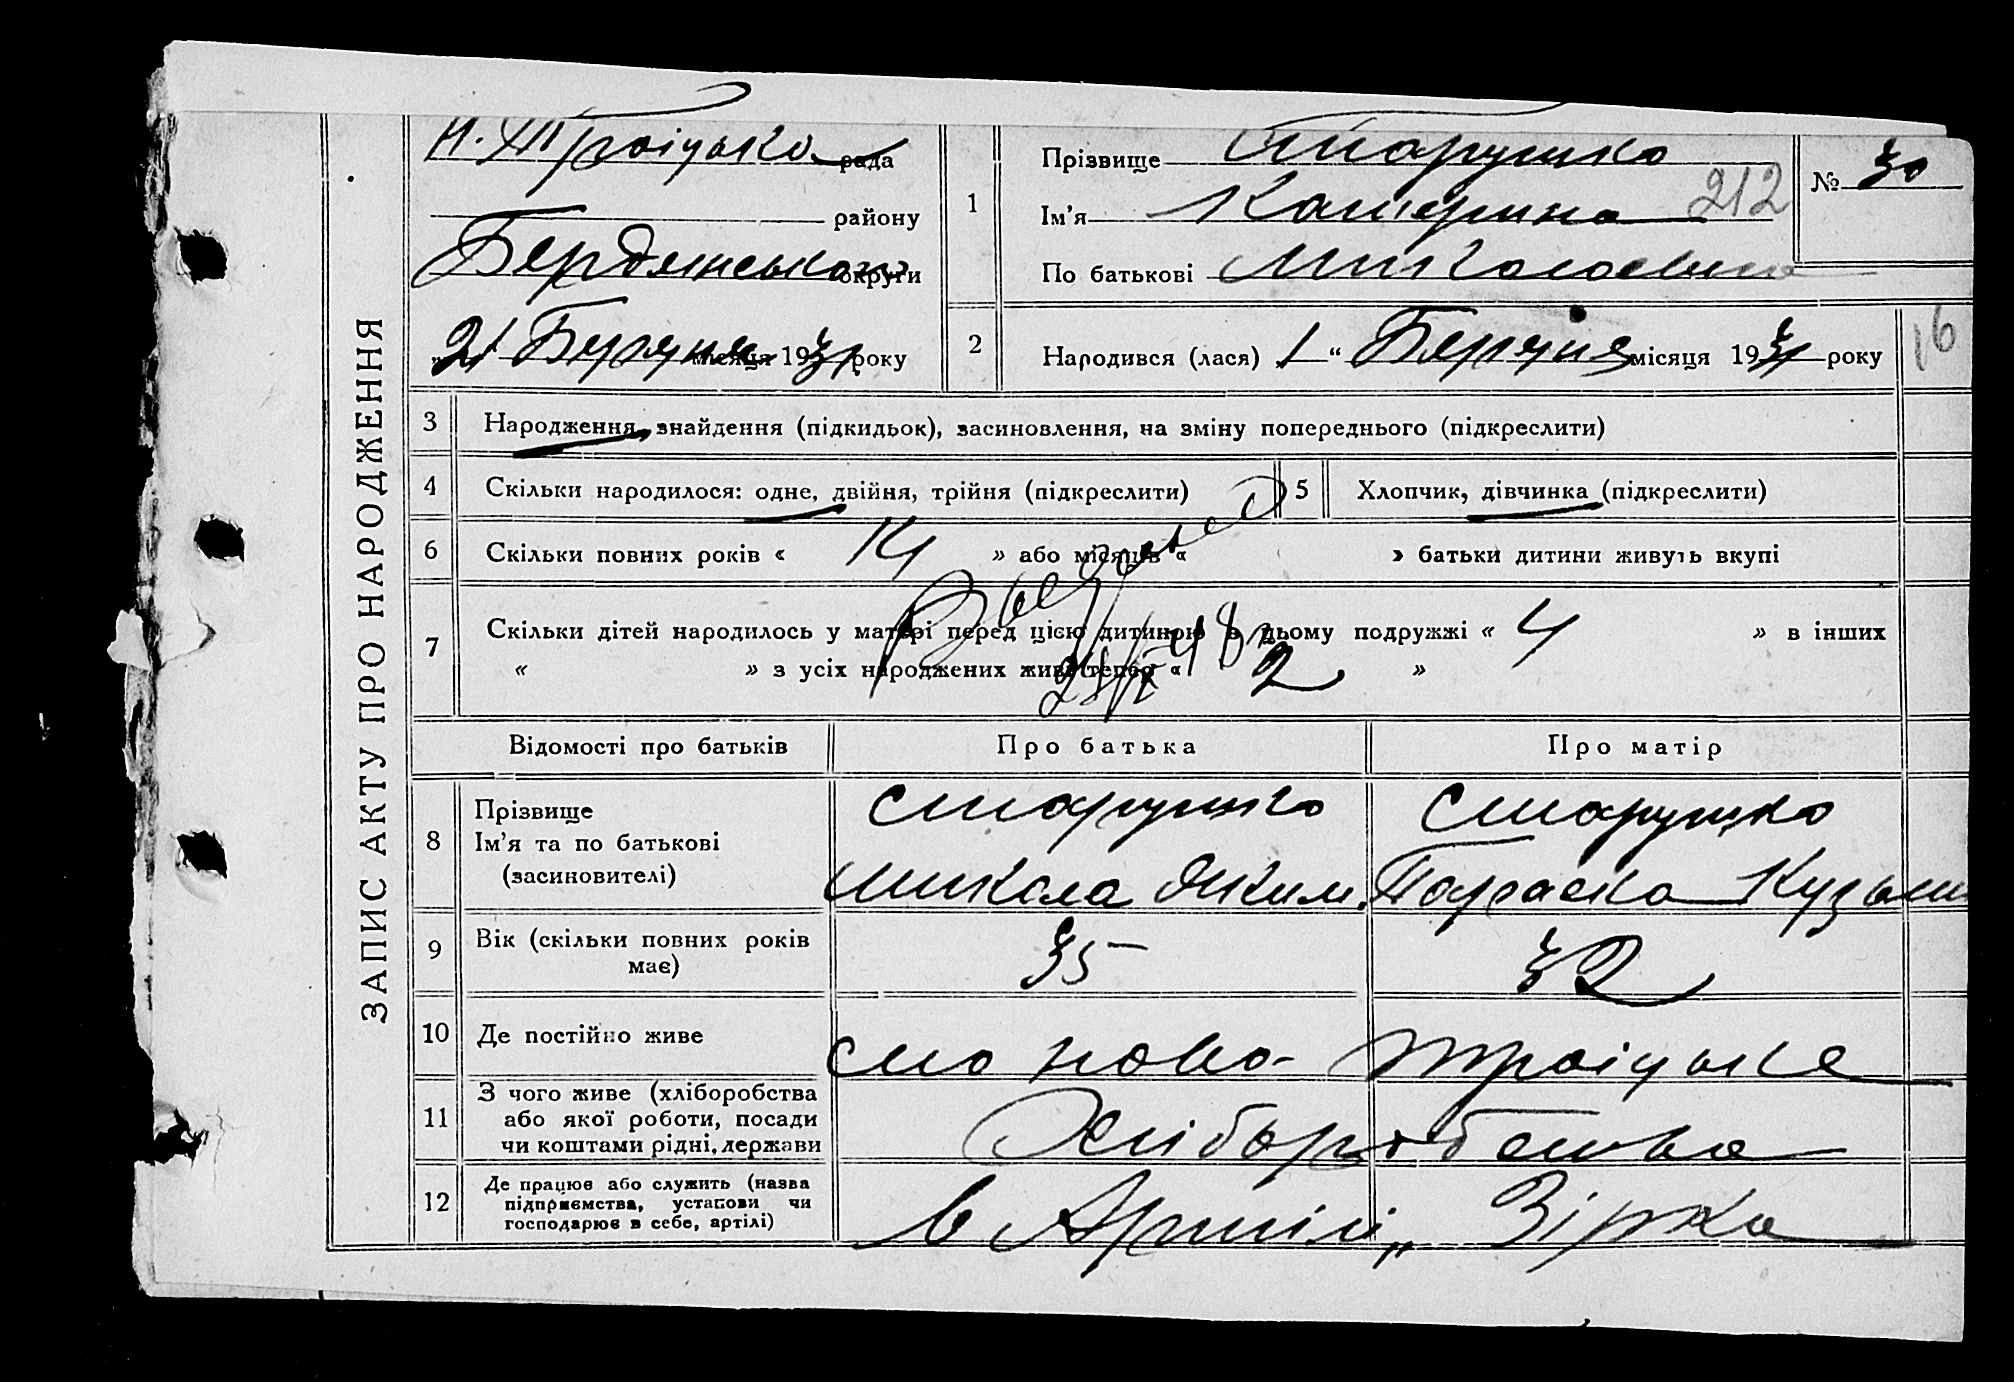 ЗАПИС АКТУ ПРО НАРОДЖЕННЯ
Н. Троіцька рада
району
Бердянського округи
„21“ Березня місяця 1931 року
1
Прізвище Старушко
Ім'я Катерина 212
По батькові Миколаевна
№ 30
2
Народився (лася) 1 “ Березня місяця 1931 року
16
3 Народження, знайдення (підкидьок), засиновлення, на зміну попереднього (підкреслити)
4 Скільки народилося: одне, двійня, трійня (підкреслити)
5 Хлопчик, дівчинка (підкреслити)
6 Скільки повних років « 14 » або місяців « » батьки дитини живуть вкупі
7 Скільки дітей народилось у матері перед цією дитиною в цьому подружжі « 4 » в інших
« » з усіх народжених живі тепер « 2 »
48
Відомості про батьків Про батька Про матір
8 Прізвище
Ім'я та по батькові
(засиновителі)
Старушко
Микола Яким.
Старушко
Параска Кузьми
9 Вік (скільки повних років
має)
35 32
10 Де постійно живе
Ново-Троіцьке
11 З чого живе (хліборобства
або якої роботи, посади
чи коштами рідні, держави
Хліборобства
12 Де працює або служить (назва
підприємства, установи чи
господарює в себе, артілі)
в Артілі „Зірка